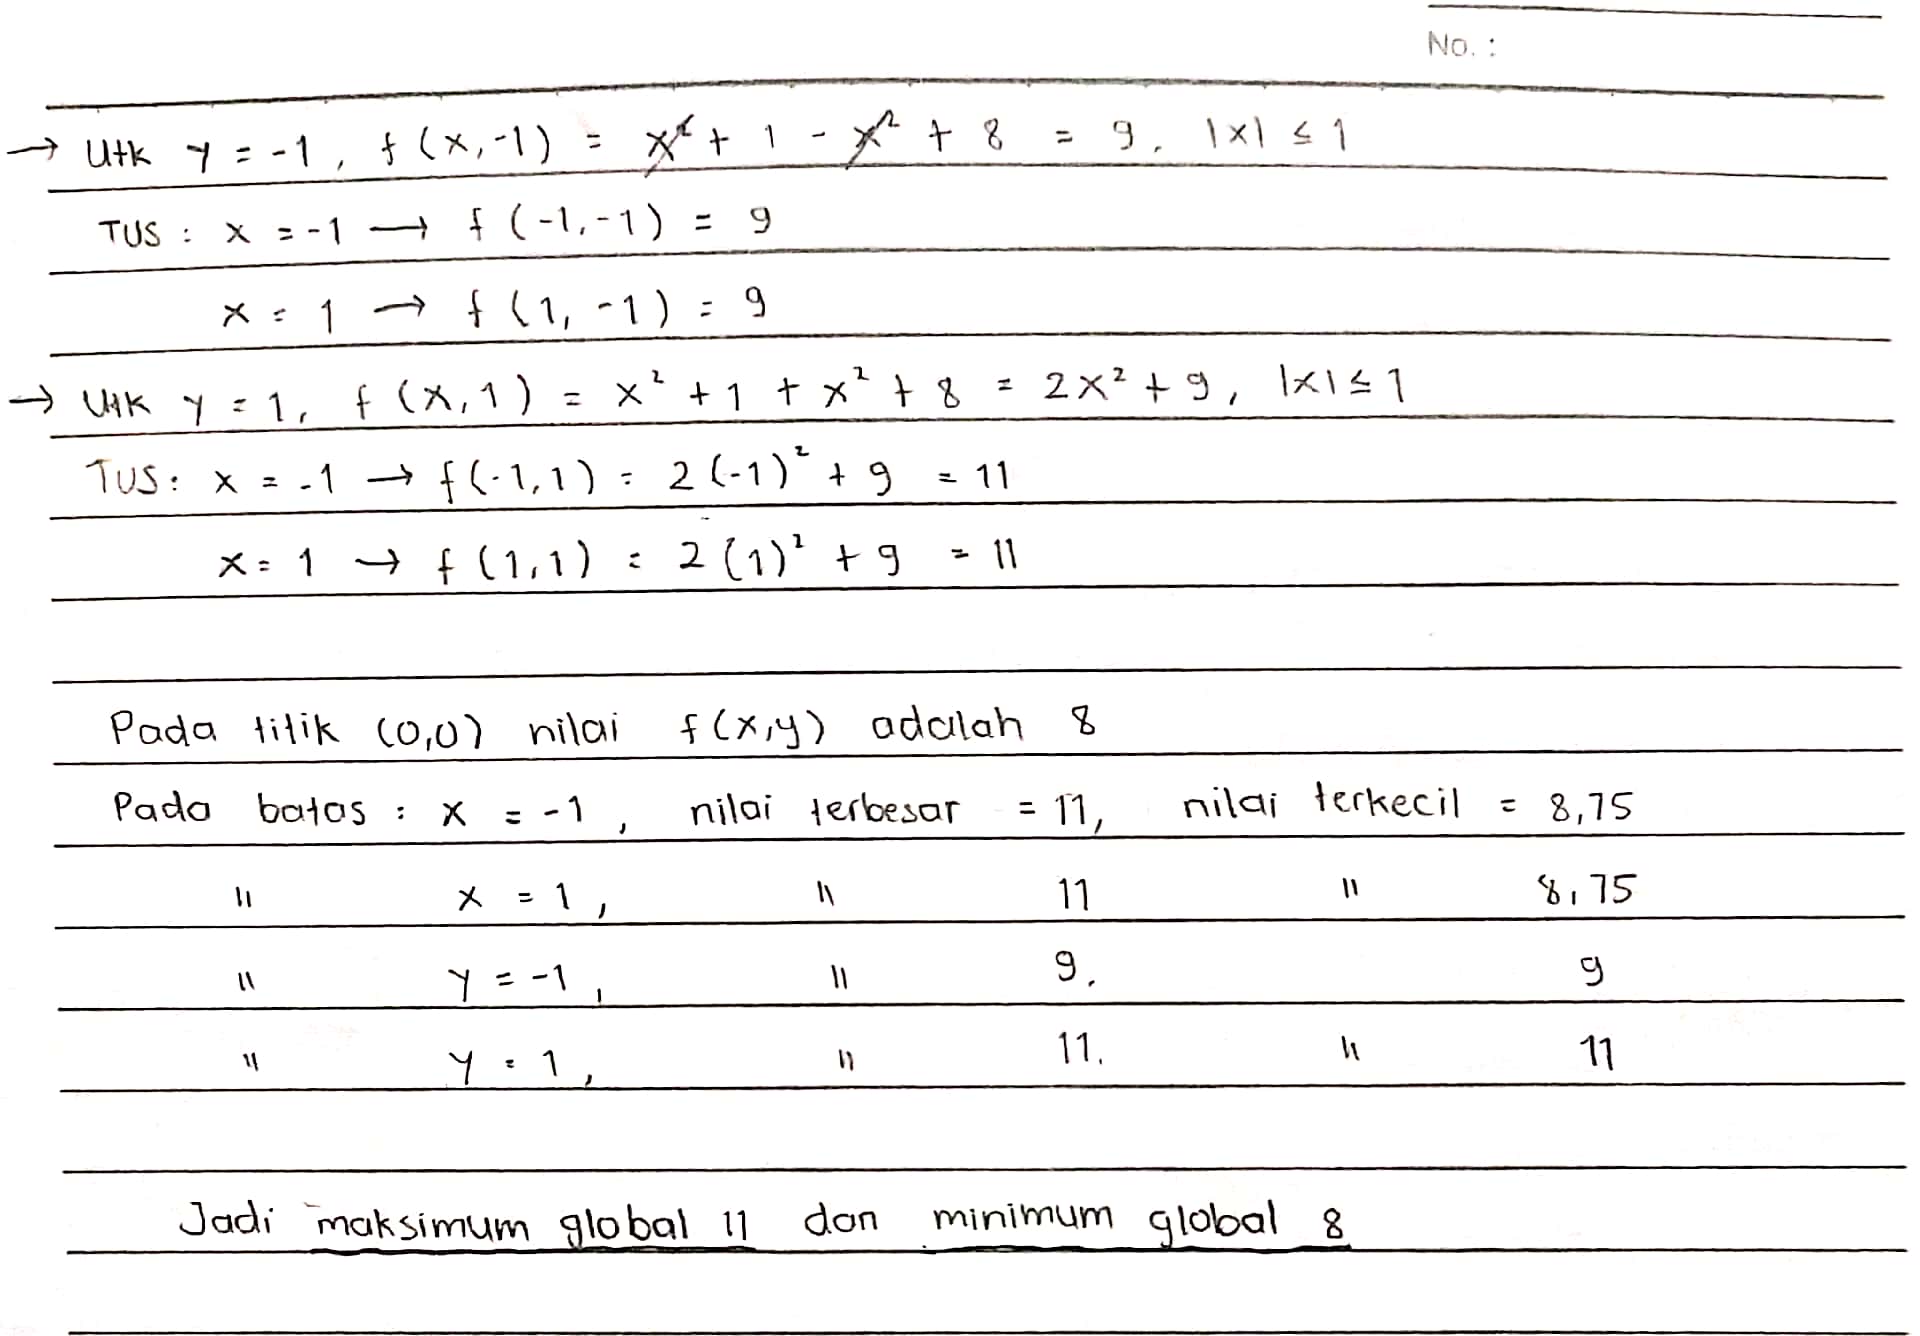 No. :
→ Utk y = -1, f(x,-1) = x² + 1 - x² + 8 = 9, |x| ≤ 1
TUS : x = -1 → f(-1,-1) = 9
x = 1 → f(1,-1) = 9
→ Utk y = 1, f(x,1) = x² + 1 + x² + 8 = 2x² + 9, |x| ≤ 1
TUS : x = -1 → f(-1,1) = 2(-1)² + 9 = 11
x = 1 → f(1,1) = 2(1)² + 9 = 11
Pada titik (0,0) nilai f(x,y) adalah 8
Pada batas : x = -1, nilai terbesar = 11, nilai terkecil = 8,75
" x = 1, " 11 " 8,75
" y = -1, " 9. 9
" y = 1, " 11. " 11
Jadi maksimum global 11 dan minimum global 8